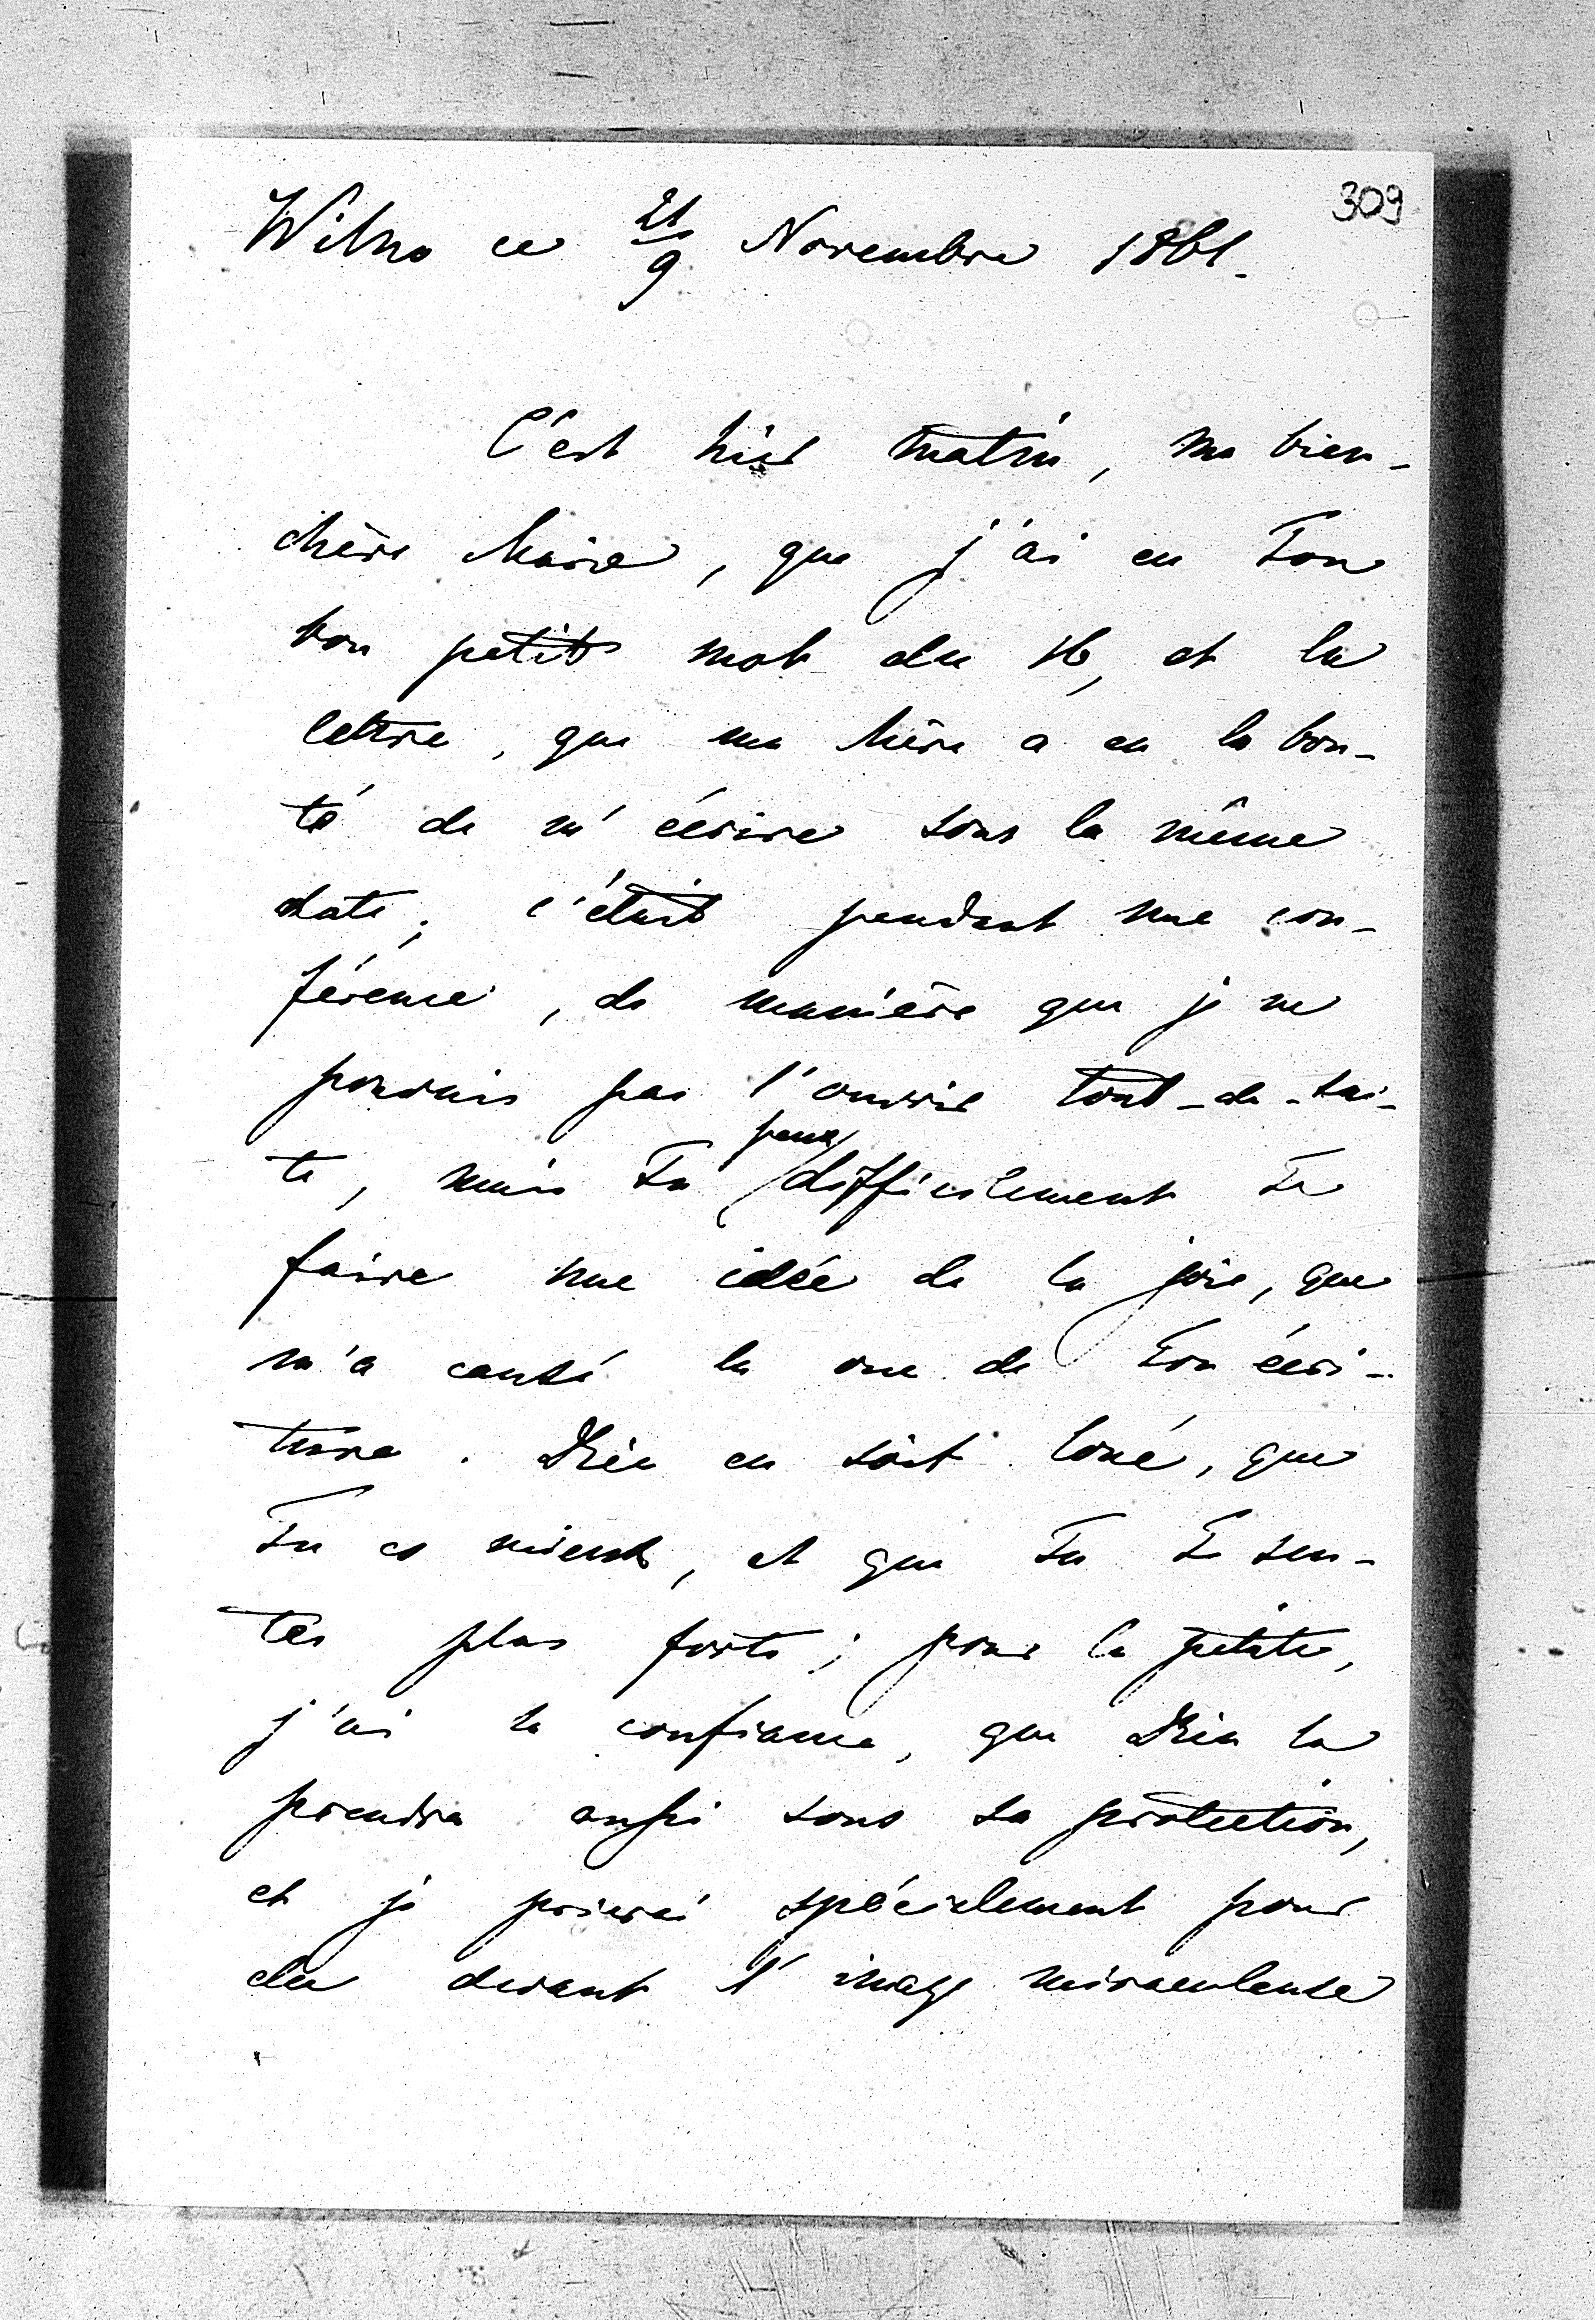 309
Wilno ce 21/9 Novembre 1861.
C'est hier matin, ma bien-
chère Marie, que j'ai eu Ton
bon petit mot du 16, et la
lettre, que ma Mère a eu la bon-
té de m'écrire sous la même
date; c'était pendant une con-
férence, de manière que je ne
pouvais pas l'ouvrir tout-de-sui-
te, mais Tu peux difficilement Te
faire une idée de la joie, que
m'a causé la vue de Ton écri-
ture. Dieu en soit loué, que
Tu es mieux, et que Tu Te sen-
tes plus forte; pour la petite,
j'ai la confiance, que Dieu la
prendra aussi sous sa protection,
et je prierai spécialement pour
elle devant l'image miraculeuse